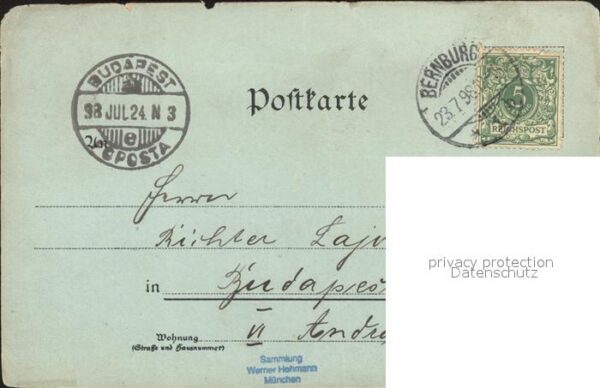 BUDAPEST
98 JUL. 24. N 3
e
POSTA
Postkarte
BERNBURG
23.7.98
5
REICHSPOST
An
Herrn
Richter Lajo
in Budapes
VI Andr
Wohnung
(Straße und Hausnummer)
privacy protection
Datenschutz
Sammlung
Werner Hohmann
München